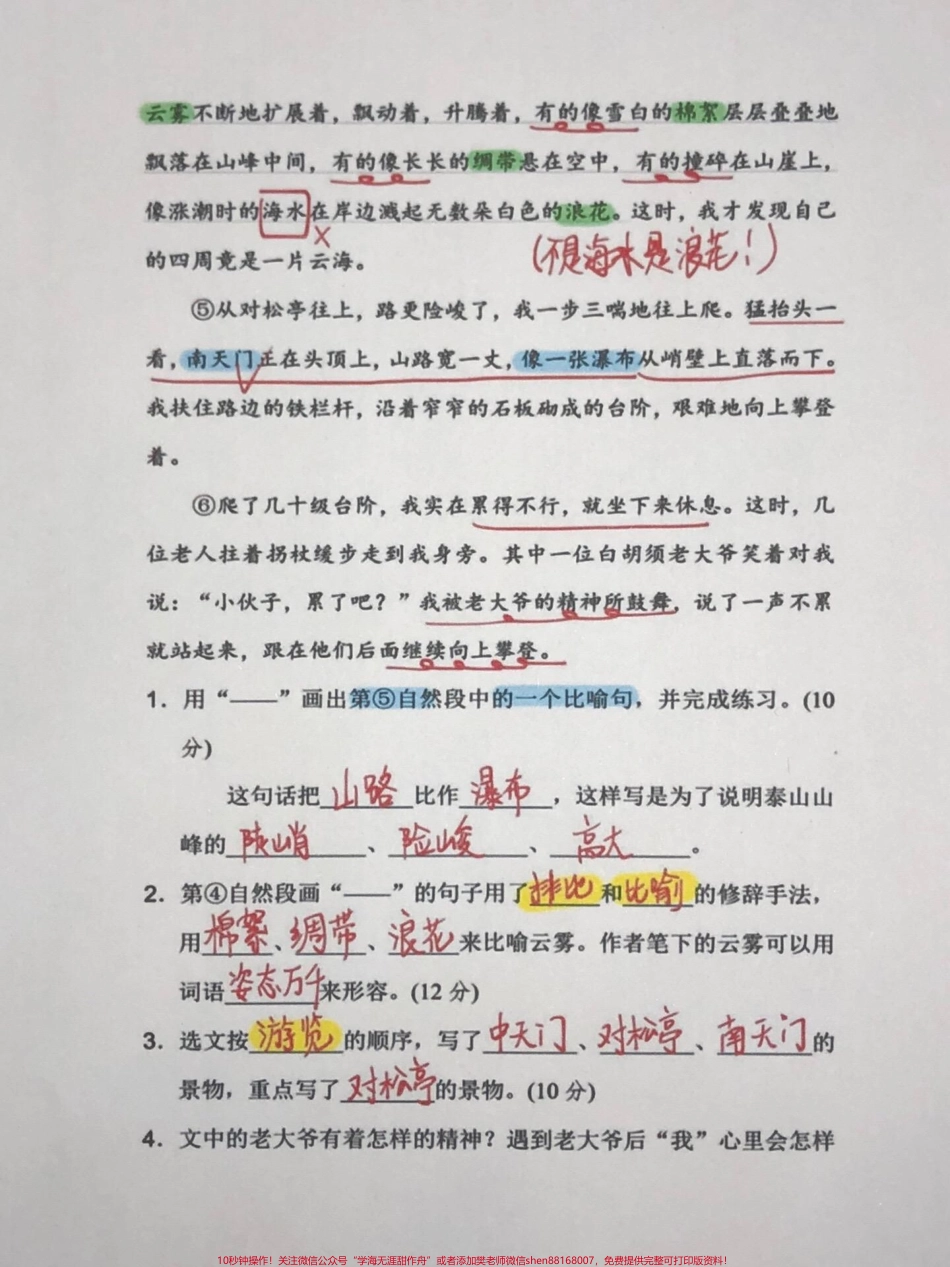 云雾不断地扩展着，飘动着，升腾着，有的像雪白的棉絮层层叠叠地
飘落在山峰中间，有的像长长的绸带悬在空中，有的撞碎在山崖上，
像涨潮时的海水在岸边溅起无数朵白色的浪花。这时，我才发现自己
的四周竟是一片云海。
(不是海水是浪花！)
⑤从对松亭往上，路更险峻了，我一步三喘地往上爬。猛抬头一
看，南天门正在头顶上，山路宽一丈，像一张瀑布从峭壁上直落而下。
我扶住路边的铁栏杆，沿着窄窄的石板砌成的台阶，艰难地向上攀登
着。
⑥爬了几十级台阶，我实在累得不行，就坐下来休息。这时，几
位老人拄着拐杖缓步走到我身旁。其中一位白胡须老大爷笑着对我
说：“小伙子，累了吧？”我被老大爷的精神所鼓舞，说了一声不累
就站起来，跟在他们后面继续向上攀登。
1. 用“——”画出第⑤自然段中的一个比喻句，并完成练习。(10
分)
这句话把山路比作瀑布，这样写是为了说明泰山山
峰的陡峭、险峻、高大。
2. 第④自然段画“——”的句子用了排比和比喻的修辞手法，
用棉絮、绸带、浪花来比喻云雾。作者笔下的云雾可以用
词语姿态万千来形容。(12分)
3. 选文按游览的顺序，写了中天门、对松亭、南天门的
景物，重点写了对松亭的景物。(10分)
4. 文中的老大爷有着怎样的精神？遇到老大爷后“我”心里会怎样
10秒钟操作！关注微信公众号“学海无涯甜作舟”或者添加樊老师微信shen88168007，免费提供完整可打印版资料！